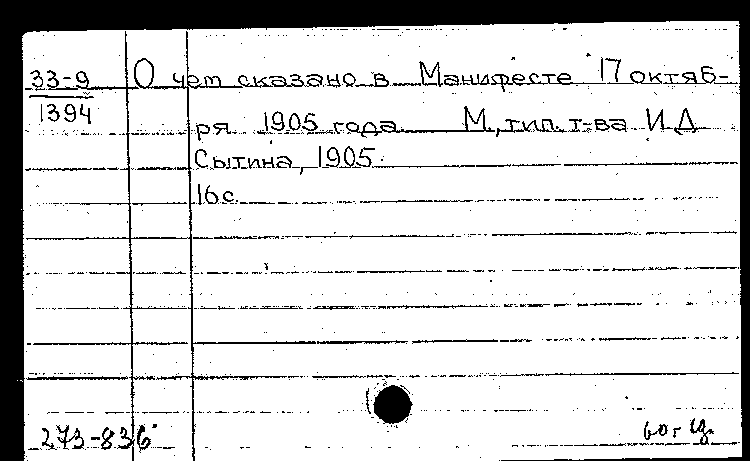 33-9 О чем сказано в Манифесте 17 октяб-
1394 ря 1905 года М., тип. т-ва И.Д.
Сытина, 1905.
16 с.
273-836